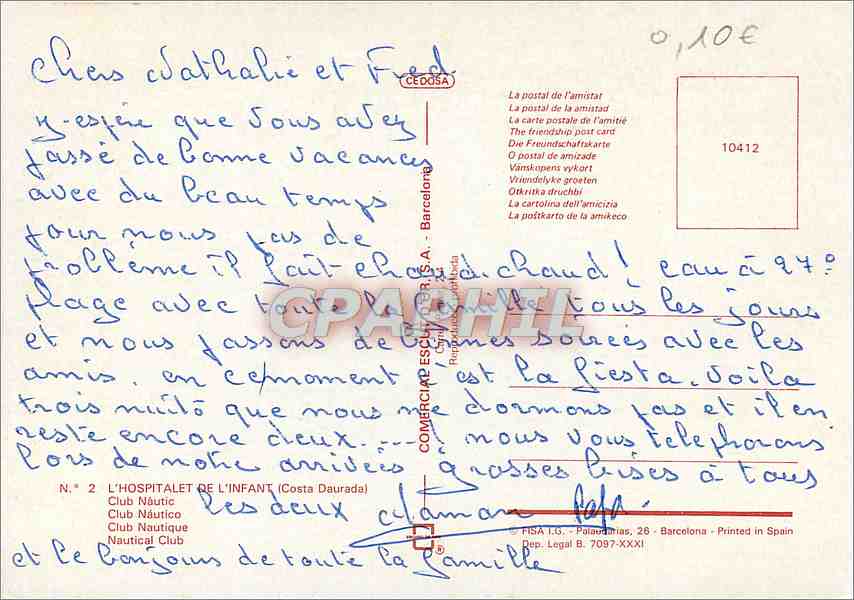 0,10€
Chers Nathalie et Fred
CEDOSA
J'espère que vous avez
passé de bonne vacances
avec du beau temps
pour nous pas de
problème il fait chaud.chaud! eau à 27°
plage avec toute la famille tous les jours
et nous passons de bonnes soirées avec les
amis. en ce moment c'est la fiesta. Voila
trois nuits que nous ne dormons pas et il en
reste encore deux.....! nous vous telephonons
lors de notre arrivées grosses bises à tous
les deux Maman Papa.
et le bonjour de toute la famille
La postal de l'amistat
La postal de la amistad
La carte postale de l'amitié
The friendship post card
Die Freundschaftskarte
O postal de amizade
Vänskopens vykort
Vriendelyke groeten
Otkritka druchbi
La cartolina dell'amicizia
La poŝtkarto de la amikeco
10412
COMERCIAL ESCUDO DE ORO, S.A. - Barcelona
Reproducción prohibida
CPAPHIL
N.° 2 L'HOSPITALET DE L'INFANT (Costa Daurada)
Club Nàutic
Club Náutico
Club Nautique
Nautical Club
®
© FISA I.G. - Palaudarias, 26 - Barcelona - Printed in Spain
Dep. Legal B. 7097-XXXI